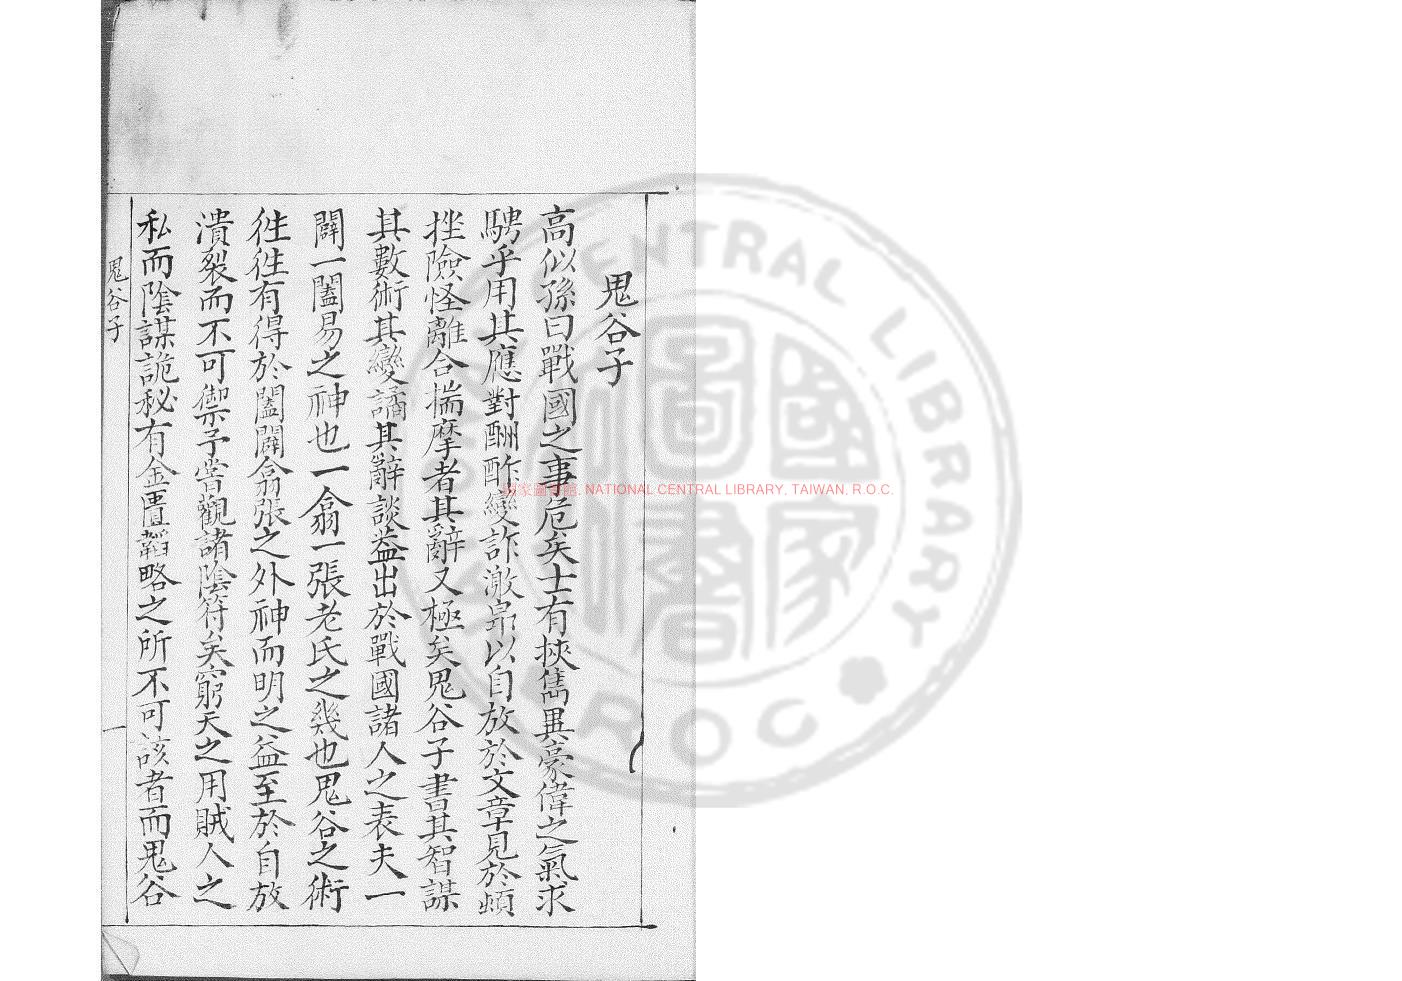 鬼谷子
高似孫曰戰國之事危矣士有挾雋異豪偉之氣求
騁乎用其應對酬酢變詐激昻以自放於文章見於頓
挫險怪離合揣摩者其辭又極矣鬼谷子書其智謀
其數術其變譎其辭談葢出於戰國諸人之表夫一
闢一闔易之神也一翕一張老氏之幾也鬼谷之術
徃徃有得於闔闢翕張之外神而明之益至於自放
潰裂而不可禦予嘗觀諸陰符矣窮天之用賊人之
私而陰謀詭秘有金匱韜略之所不可該者而鬼谷
鬼谷子
一
國家圖書館, NATIONAL CENTRAL LIBRARY, TAIWAN, R.O.C.
CENTRAL LIBRARY
R.O.C
國家圖書